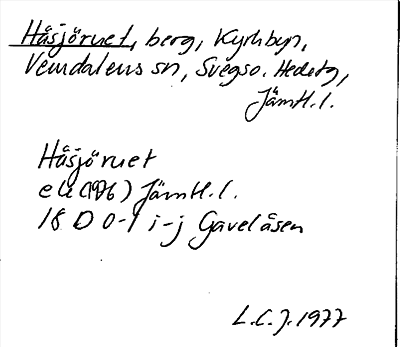 Håsjöruet, berg, Kyrkbyn,
Vemdalens sn, Svegs o. Hedetg,
Jämtl. l.
Håsjöruet
ek (1976) Jämtl. l.
18 D 0-1 i-j Gavelåsen
L.C.J. 1977